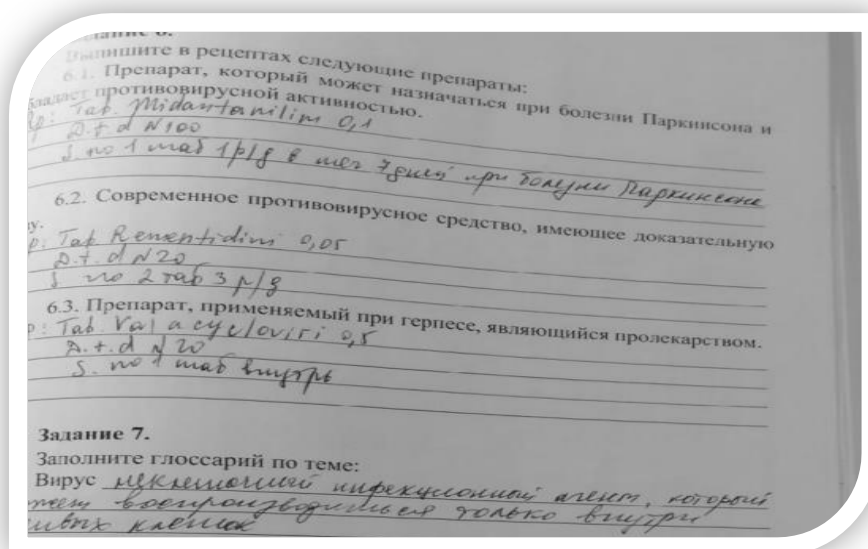 Задание 6.
Выпишите в рецептах следующие препараты:
6.1. Препарат, который может назначаться при болезни Паркинсона и
обладает противовирусной активностью.
Rp: Tab. Midantanilini 0,1
D.t.d N100
S. по 1 таб 1р/д в теч 7 дней при болезни Паркинсона
6.2. Современное противовирусное средство, имеющее доказательную
p: Tab. Remantidini 0,05
D.t.d N20
S по 2 таб 3 р/д
6.3. Препарат, применяемый при герпесе, являющийся пролекарством.
p: Tab. Valacycloviri 0,5
D.t.d N 20
S. по 1 таб внутрь
Задание 7.
Заполните глоссарий по теме:
Вирус неклеточный инфекционный агент, который
может воспроизводиться только внутри
живых клеток